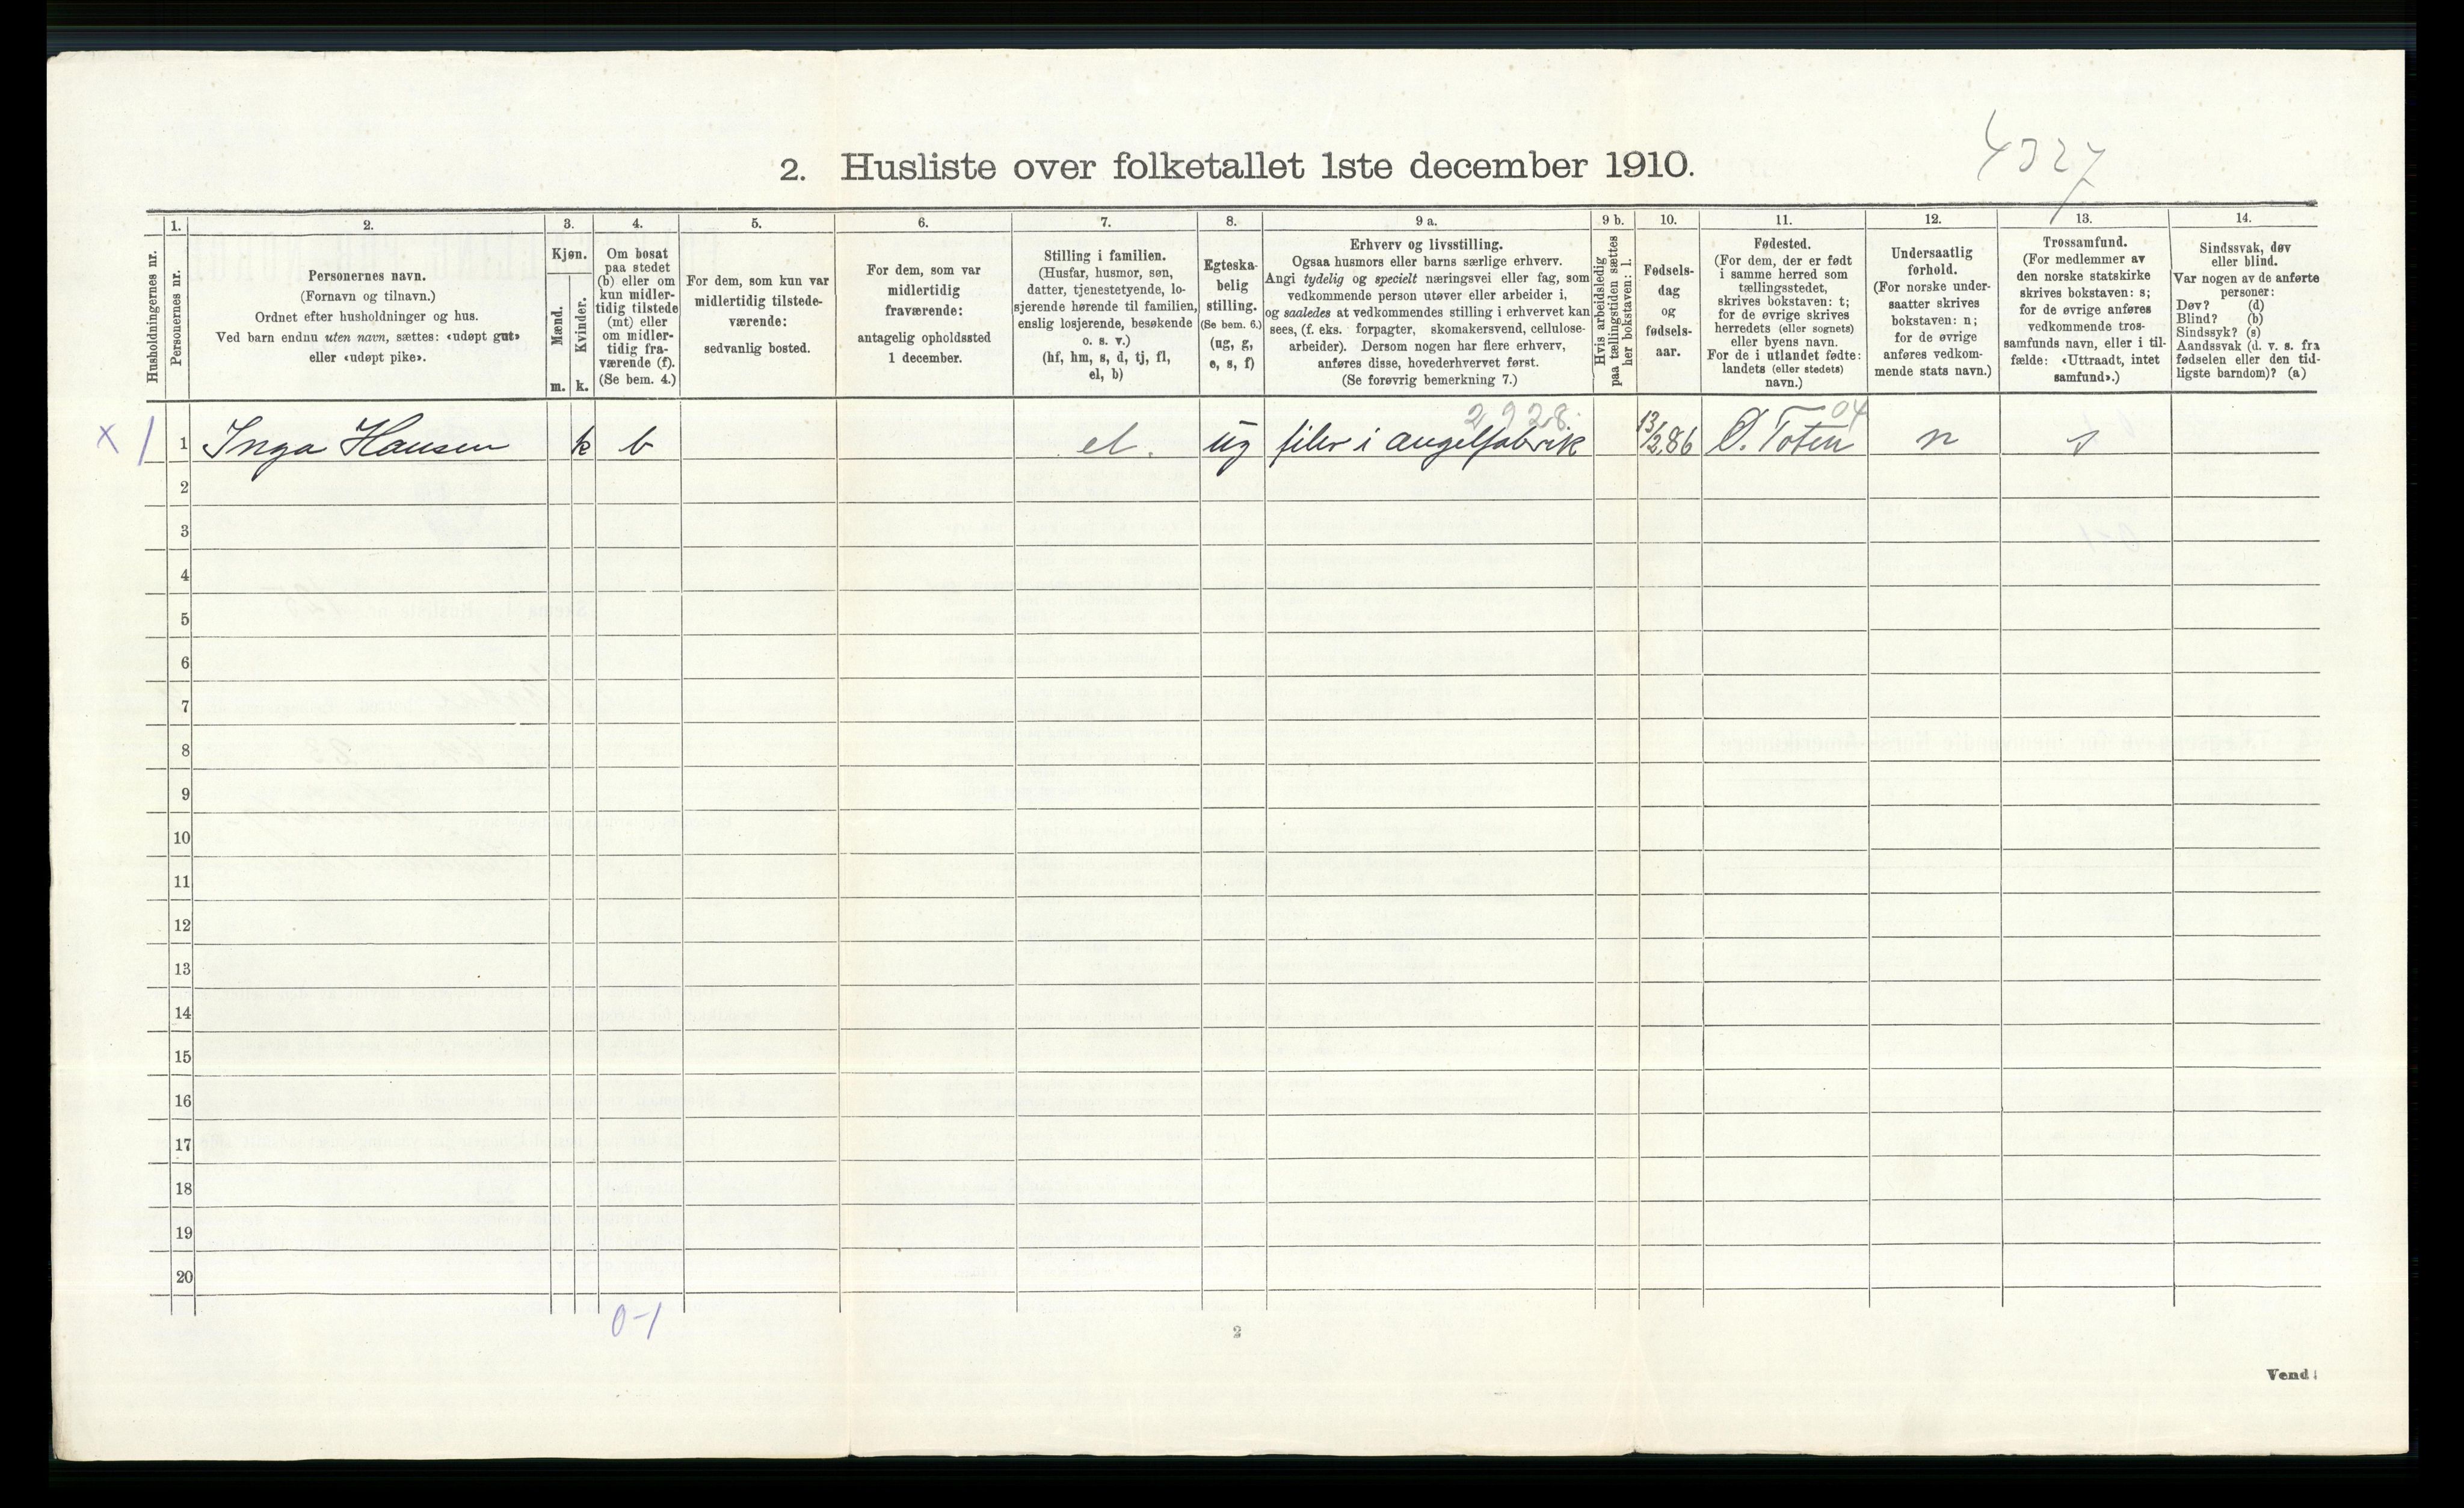 4327
2. Husliste over folketallet 1ste december 1910.
Husholdningernes nr.
1.
Personernes nr.
2.
Personernes navn.
(Fornavn og tilnavn.)
Ordnet efter husholdninger og hus.
Ved barn endnu uten navn, sættes: «udøpt gut»
eller «udøpt pike».
3.
Kjøn.
Mænd.
Kvinder.
m. k.
4.
Om bosat
paa stedet
(b) eller om
kun midler-
tidig tilstede
(mt) eller
om midler-
tidig fra-
værende (f).
(Se bem. 4.)
5.
For dem, som kun var
midlertidig tilstede-
værende:
sedvanlig bosted.
6.
For dem, som var
midlertidig
fraværende:
antagelig opholdssted
1 december.
7.
Stilling i familien.
(Husfar, husmor, søn,
datter, tjenestetyende, lo-
sjerende hørende til familien,
enslig losjerende, besøkende
o. s. v.)
(hf, hm, s, d, tj, fl,
el, b)
8.
Egteska-
belig
stilling.
(Se bem. 6.)
(ug, g,
e, s, f)
9 a.
Erhverv og livsstilling.
Ogsaa husmors eller barns særlige erhverv.
Angi tydelig og specielt næringsvei eller fag, som
vedkommende person utøver eller arbeider i,
og saaledes at vedkommendes stilling i erhvervet kan
sees, (f. eks. forpagter, skomakersvend, cellulose-
arbeider). Dersom nogen har flere erhverv,
anføres disse, hovederhvervet først.
(Se forøvrig bemerkning 7.)
9 b.
Hvis arbeidsledig
paa tællingstiden sættes
her bokstaven: l.
10.
Fødsels-
dag
og
fødsels-
aar.
11.
Fødested.
(For dem, der er født
i samme herred som
tællingsstedet,
skrives bokstaven: t;
for de øvrige skrives
herredets (eller sognets)
eller byens navn.
For de i utlandet fødte:
landets (eller stedets)
navn.)
12.
Undersaatlig
forhold.
(For norske under-
saatter skrives
bokstaven: n;
for de øvrige
anføres vedkom-
mende stats navn.)
13.
Trossamfund.
(For medlemmer av
den norske statskirke
skrives bokstaven: s;
for de øvrige anføres
vedkommende tros-
samfunds navn, eller i til-
fælde: «Uttraadt, intet
samfund».)
14.
Sindssvak, døv
eller blind.
Var nogen av de anførte
personer:
Døv? (d)
Blind? (b)
Sindssyk? (s)
Aandssvak (d. v. s. fra
fødselen eller den tid-
ligste barndom)? (a)
2928. 04
x / 1 Inga Hansen k b el. ug filer i angelfabrik 13/2 86 Ø. Toten n s
2
3
4
5
6
7
8
9
10
11
12
13
14
15
16
17
18
19
20
0-1
2
Vend!